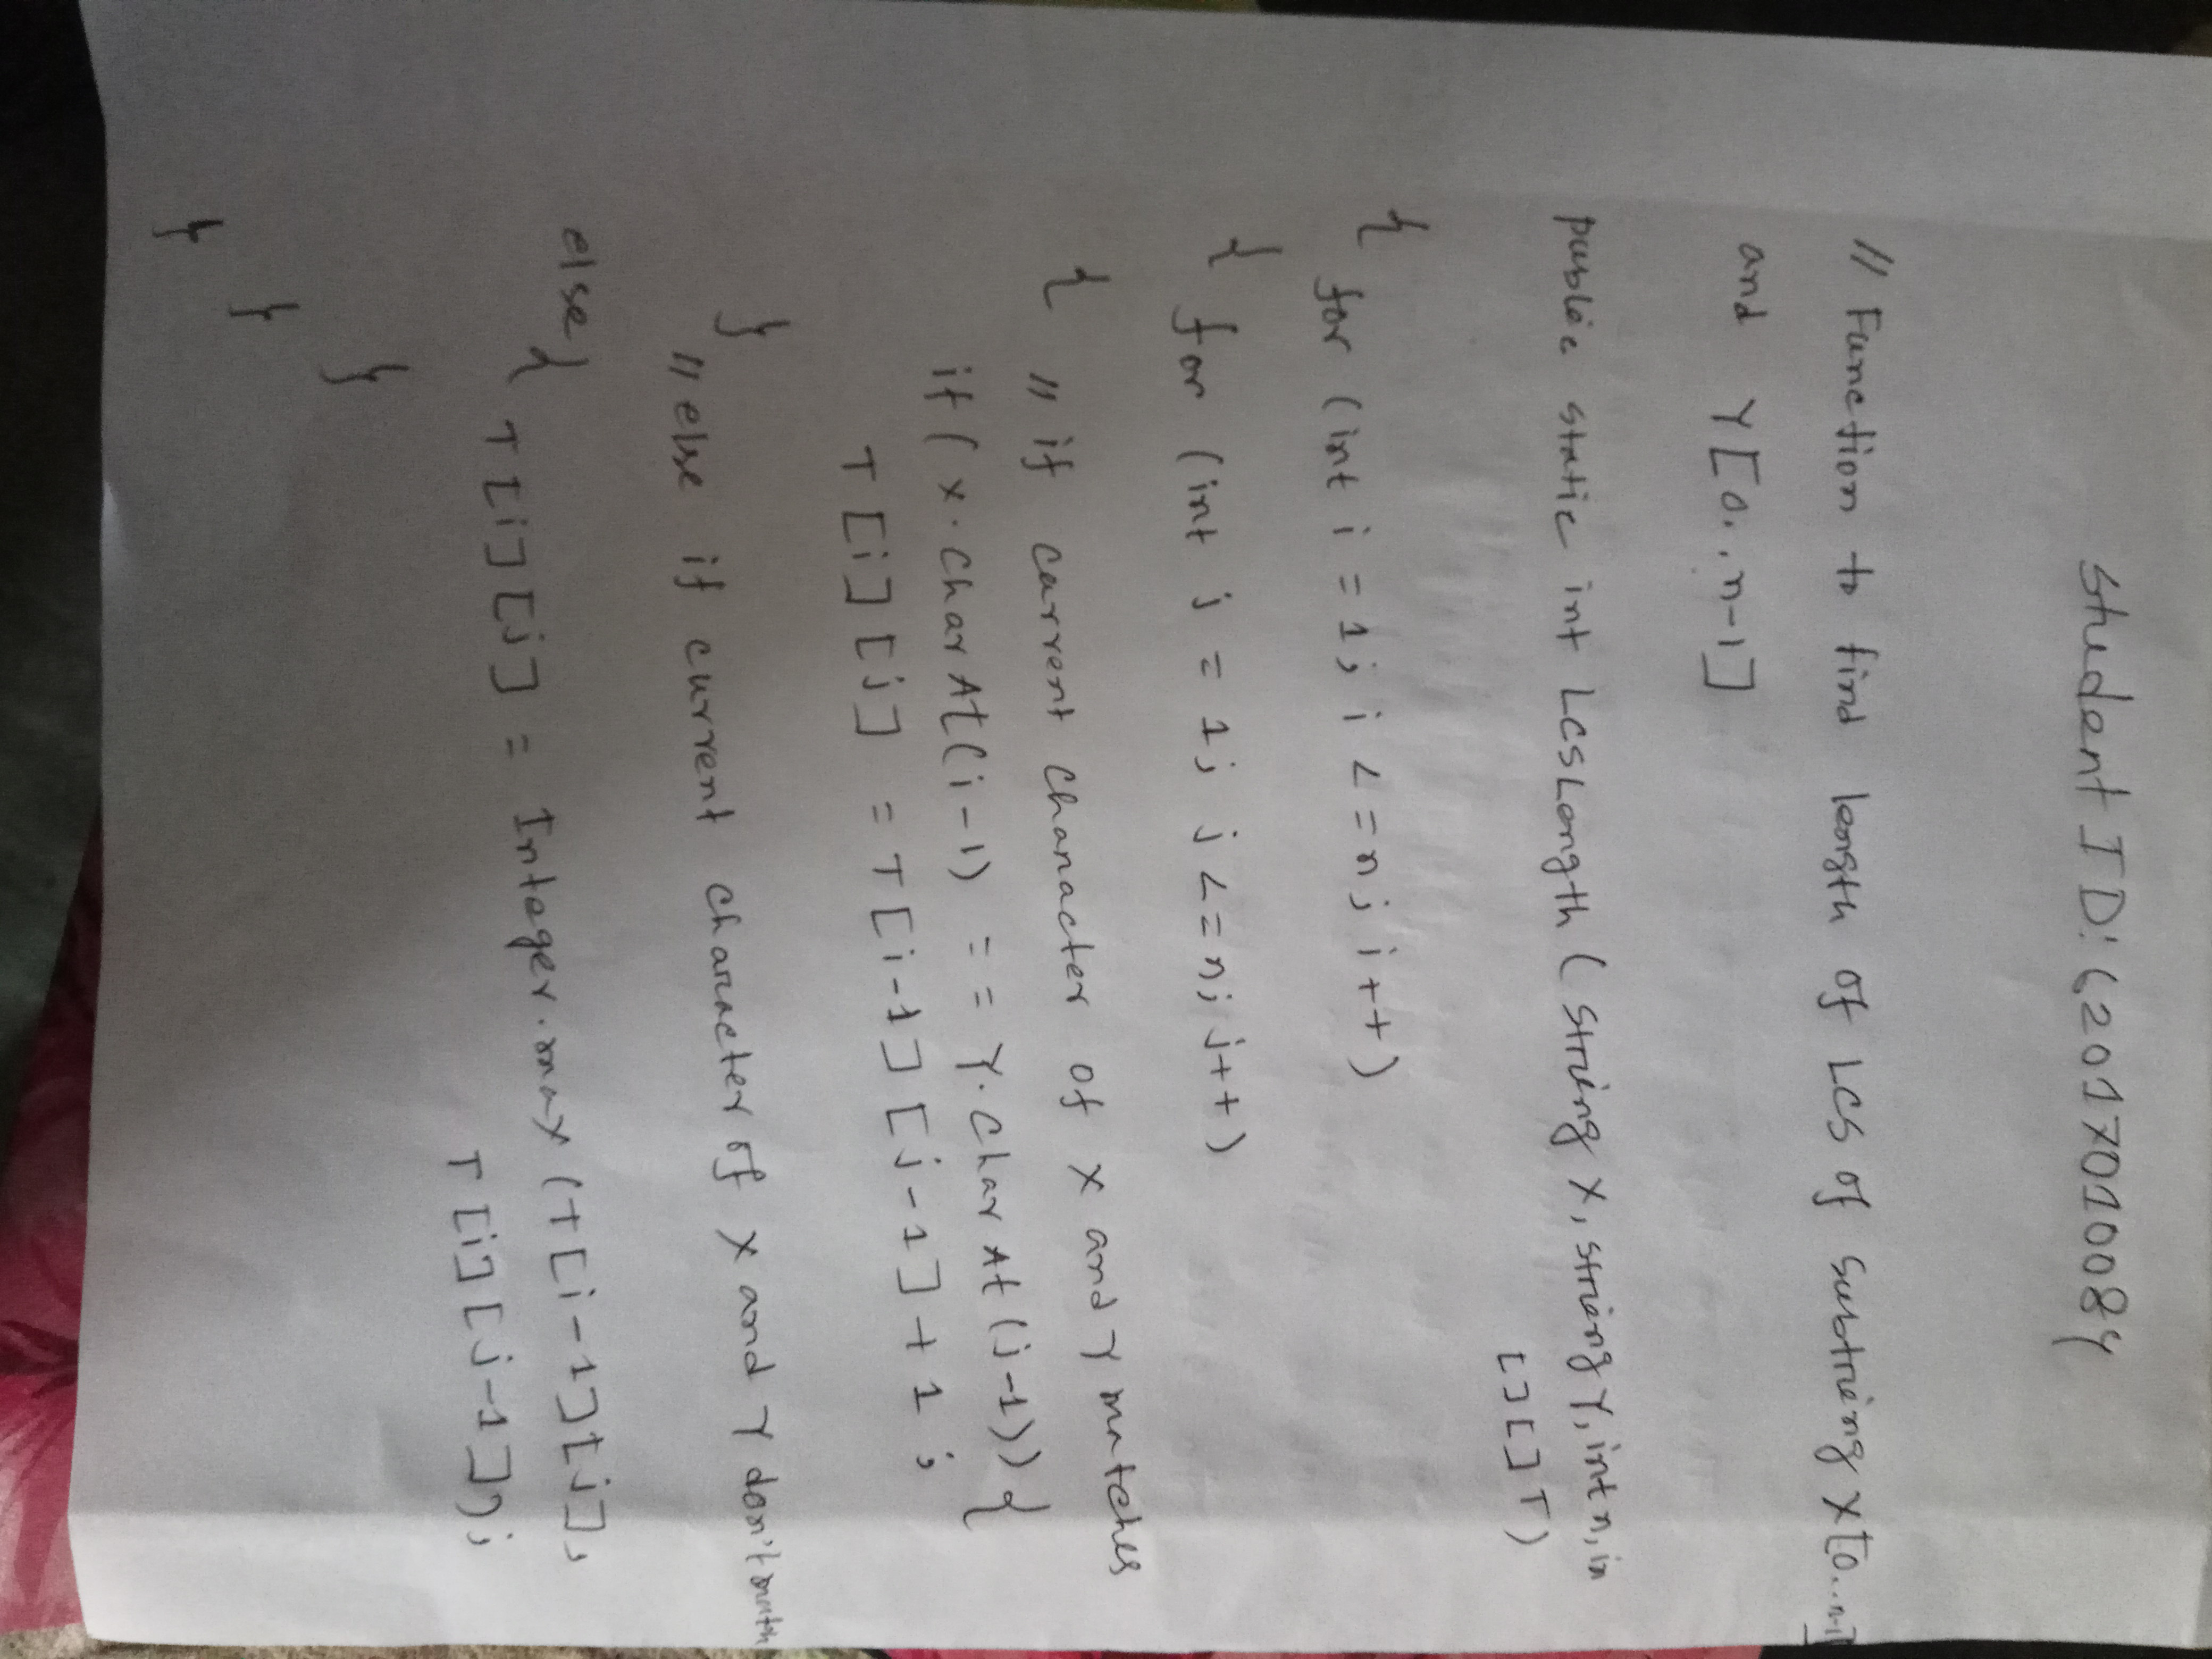 Student ID: (2017010084
// Function to find length of LCS of substring X[0...n-1]
and Y[0..n-1]
public static int LCSLength (string X, string Y, int n, in
[][]T)
{ for (int i = 1; i <= n; i++)
{ for (int j = 1; j <= n; j++)
{ // if current character of X and Y matches
if (X.charAt(i-1) == Y.charAt(j-1)) {
T[i][j] = T[i-1][j-1]+1;
}
// else if current character of X and Y don't
else { T[i][j] = Integer.max (T[i-1][j],
T[i][j-1]);
}
}
}